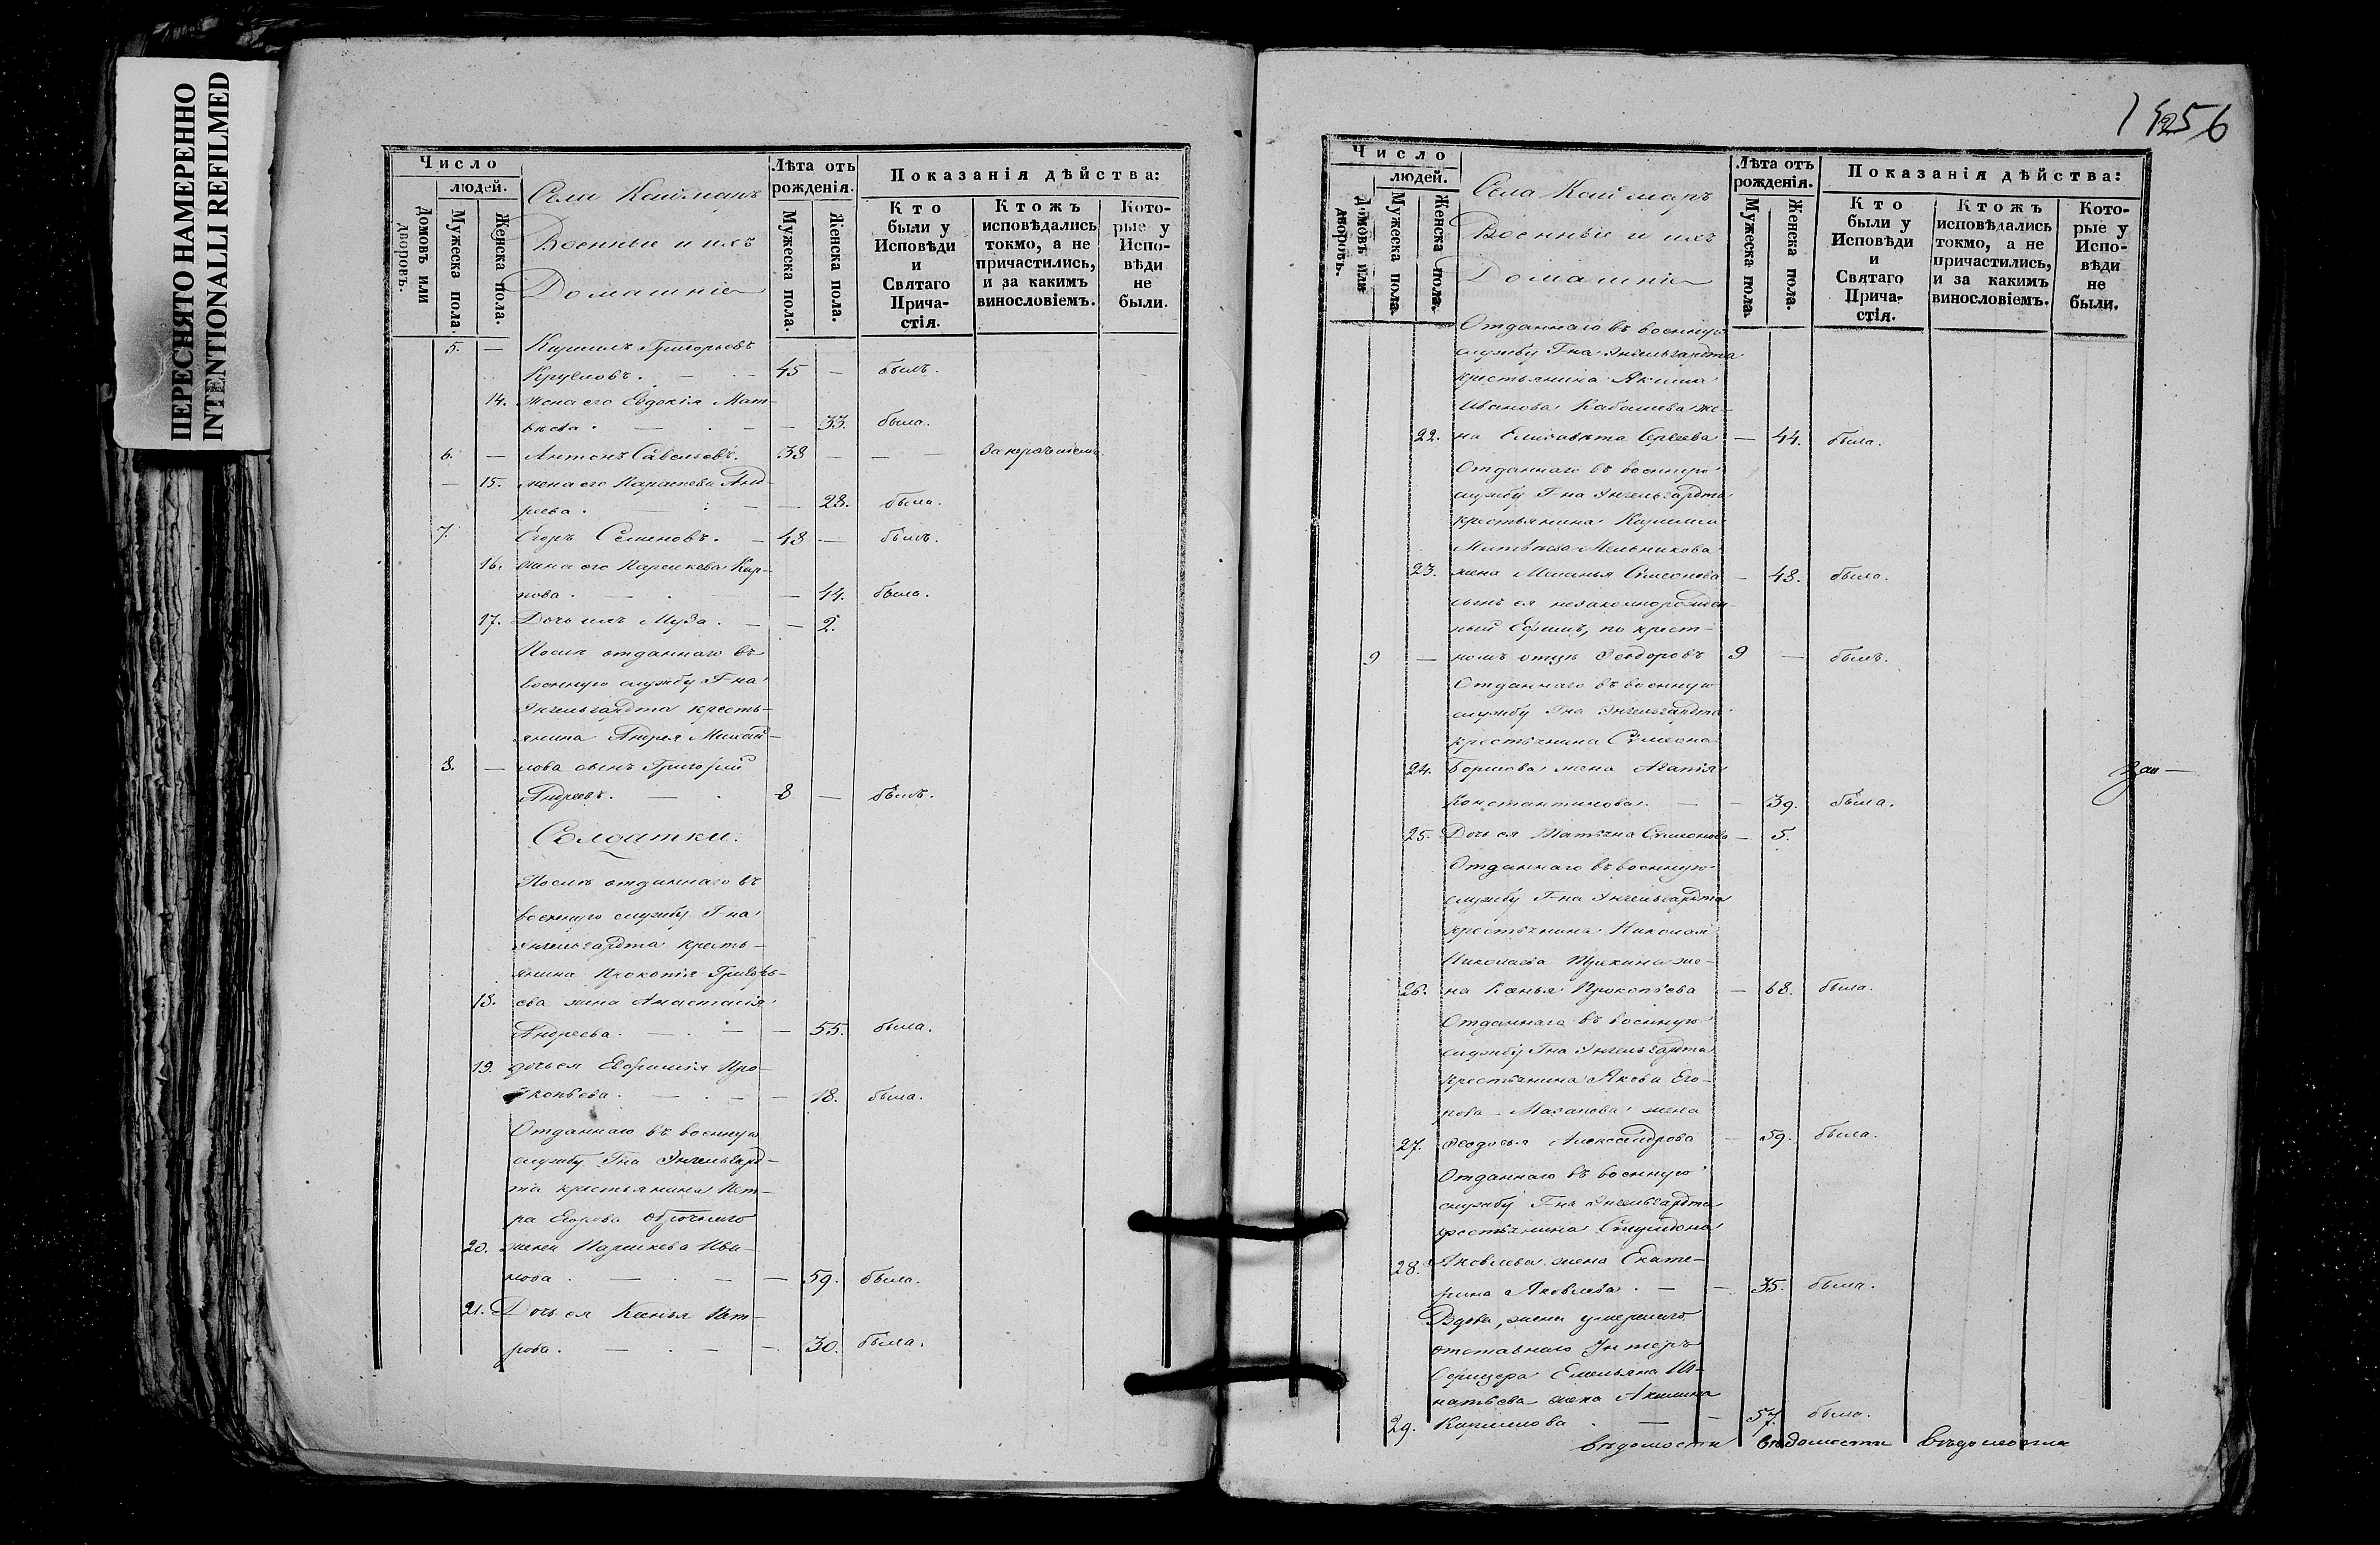 ПЕРЕСНЯТО НАМЕРЕННО
INTENTIONALLI REFILMED
Число
людей.
Домовъ или дворовъ.
Мужеска пола.
Женска пола.
Села Каймаръ
Военные и ихъ
Домашніе
Лѣта отъ рожденія.
Мужеска пола.
Женска пола.
Показанія дѣйства:
Кто были у Исповѣди и Святаго Причастія.
Ктожъ исповѣдались токмо, а не причастились, и за какимъ винословіемъ.
Которые у Исповѣди не были.
5. — Кирилъ Григорьевъ
Кругловъ. — 45 — былъ.
14. жена его Евдокія Мат-
вѣева. — — 33. была.
6. — Антонъ Савельевъ. 38 — — —
— 15. жена его Параскева Анд-
реева. — — 28. была.
7. Егоръ Семеновъ. — 48 — былъ.
16. жена его Параскева Кар-
пова. — — 44. была.
17. Дочь ихъ Муза. — — 2.
Послѣ отданнаго въ
военную службу Г-на
Энгельгардта кресть-
янина Андрея Михай-
8. — лова сынъ Григорій
Андреевъ. — 8 — былъ.
Солдатки.
Послѣ отданнаго въ
военную службу Г-на
Энгельгардта кресть-
янина Прокопія Григорь-
18. ева жена Анастасія
Андреева. — — 55. была.
19. дочь ея Евфимія Про-
копьева. — — 18. была.
Отданнаго въ военную
службу Г-на Энгельгард-
та крестьянина Пет-
ра Егорова
20. жена Параскева Ива-
нова. — — 59. была.
21. Дочь ея Ксенья Пет-
рова. — — 30. была.
1256
Число
людей.
Домовъ или дворовъ.
Мужеска пола.
Женска пола.
Села Каймаръ
Военные и ихъ
Домашніе
Лѣта отъ рожденія.
Мужеска пола.
Женска пола.
Показанія дѣйства:
Кто были у Исповѣди и Святаго Причастія.
Ктожъ исповѣдались токмо, а не причастились, и за какимъ винословіемъ.
Которые у Исповѣди не были.
Отданнаго въ военную
службу Г-на Энгельгардта
крестьянина Якима
Иванова Кабашева же-
22. на Елисавета Сергеева — 44. была.
Отданнаго въ военную
службу Г-на Энгельгардта
крестьянина Кирилла
Матвѣева Мельникова
23. жена Меланья Симеонова — 48. была.
сынъ ея незаконнорожден-
ный Ефимъ, по крест-
9 — номъ отцѣ Феодоровъ 9 — былъ.
Отданнаго въ военную
службу Г-на Энгельгардта
крестьянина Симеона
24. Борисова жена Агапія
Константинова. — — 39. была.
25. Дочь ея Татьяна Симеонова — 5.
Отданнаго въ военную
службу Г-на Энгельгардта
крестьянина Николая
Николаева же-
26. на Ксенья Прокопьева — 68. была.
Отданнаго въ военную
службу Г-на Энгельгардта
крестьянина Якова Его-
рова жена
27. Феодосья Александрова — 59. была.
Отданнаго въ военную
службу Г-на Энгельгардта
крестьянина Спиридона
28. Яковлева жена Екате-
рина Яковлева. — — 35. была.
Вдова, жена умершаго
отставнаго Унтеръ
Офицера Емельяна Иг-
натьева жена Акилина
29. Кириллова. — — 57. была.
вѣдомости вѣдомости вѣдомости